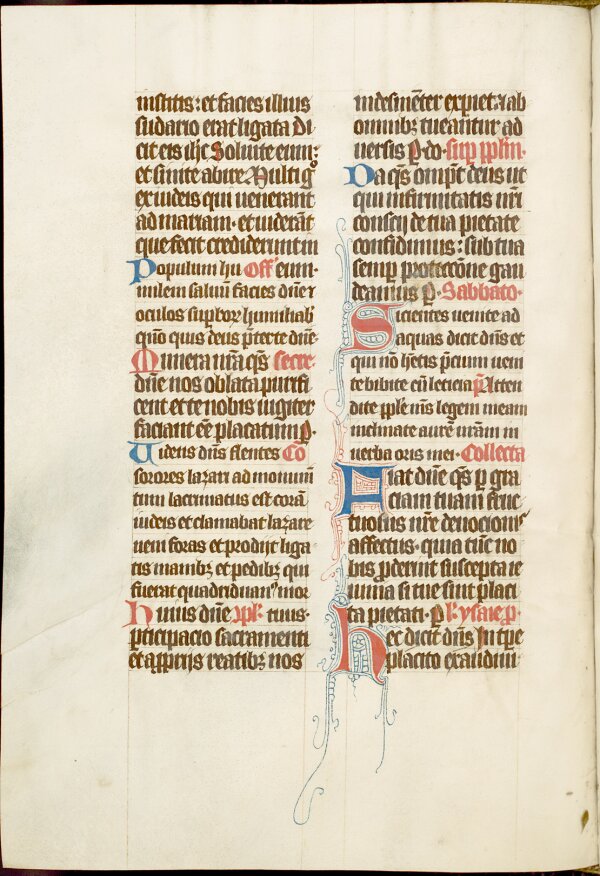 institis : et facies illius
sudario erat ligata Di
cit eis ihc Soluite eum :
et sinite abire Multi g͛
ex iudeis qui uenerant
ad mariam · et uiderāt
que fecit crediderunt in
Populum hu Off eum ·
milem saluū facies dn̄e ⁊
oculos supbor humiliab
quō quis deus p̄ter te dn̄e
Munera nr̄a qs̄ secre
dn̄e nos oblata purifi
cent et te nobis iugiter
faciant eē placatum p̱ ·
Videns dn̄s flentes Co
sorores lazari ad monum
tum lacrimatus est corā
iudeis et clamabat lazare
ueni foras et prodijt liga
tis manibꝫ et pedibꝫ qui
fuerat quadriduan mor
Huius dn̄e xpl tuus ·
p̱ticipacio sacramenti
et a p̱prijs reatibꝫ nos
indesinēter expiet · ⁊ ab
omnibꝫ tueantur ad
uersis P̱ · do · sup pplm ·
Da qs̄ omp̄t deus ut
qui infirmitatis nr̄i
conscij de tua pietate
confidimus : sub tua
semp̱ proteccōne gau
deamus p̱ · Sabbato ·
Sicientes uenite ad
aquas dicit dn̄s et
qui nō hētis p̄cium ueni
te bibite cū leticia p̱s Atten
dite pple m̄s legem meam
inclinate aurē uram in
uerba oris mei · Collecta
Fiat dn̄e qs̄ p̱ gra
ciam tuam fruc
tuosus nr̄e deuocionis
affectus · quia tūc no
bis p̱derunt suscepta ie
iunia si tue sint placi
ta pietati · p̱ l · ysaie p̱ ·
Hec dicit dn̄s In tp̱e
placito exaudiui